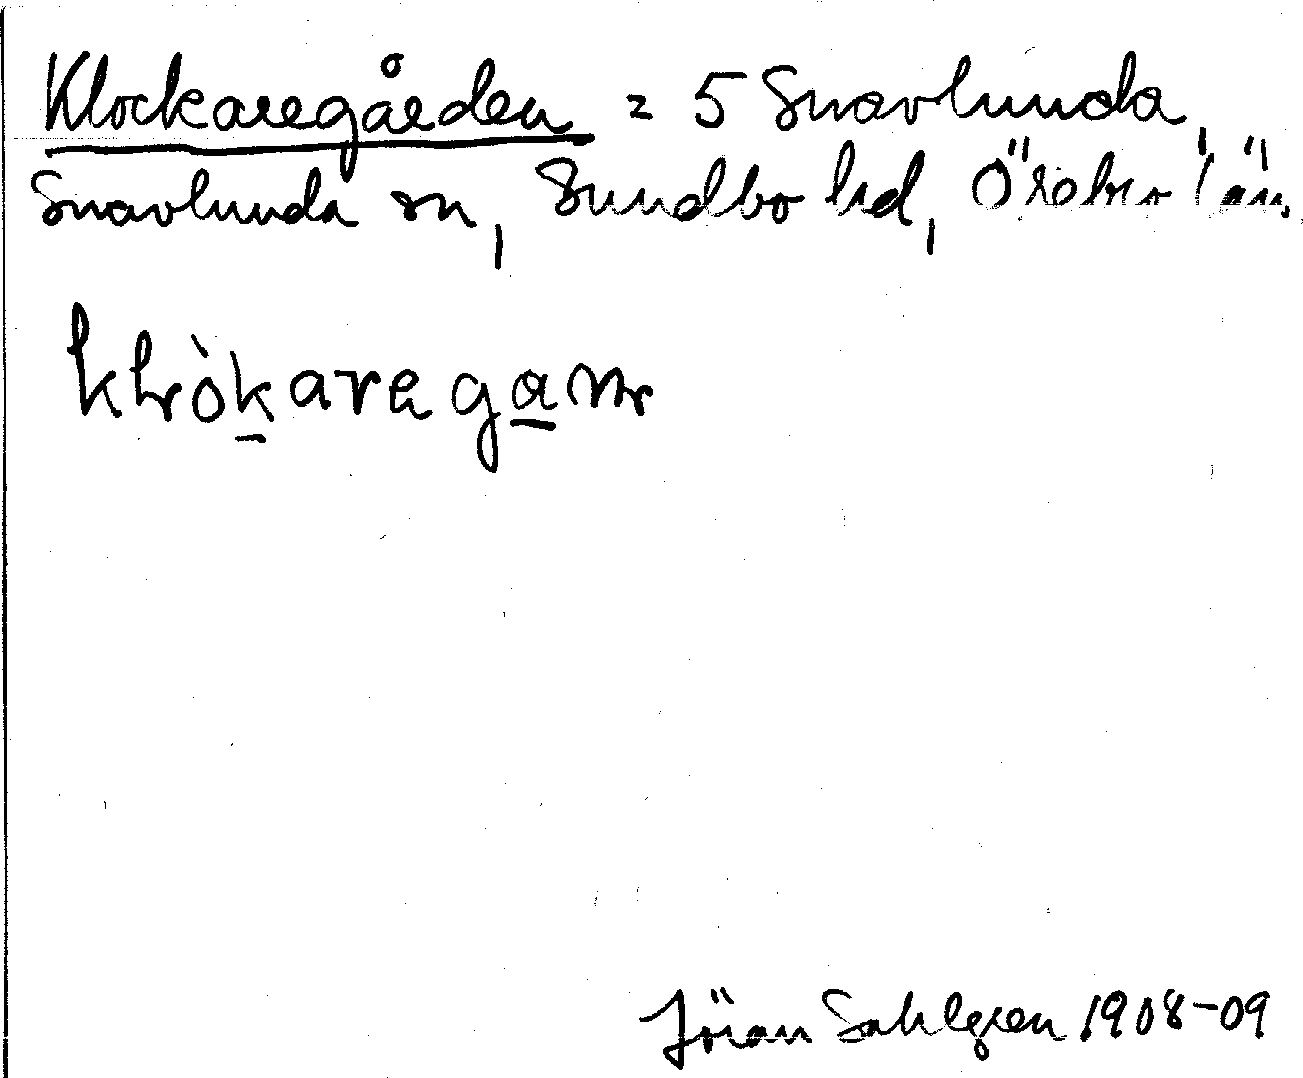 Klockaregården = 5 Snavlunda,
Snavlunda sn, Sundbo hd, Örebro län.
Jöran Sahlgren 1908-09